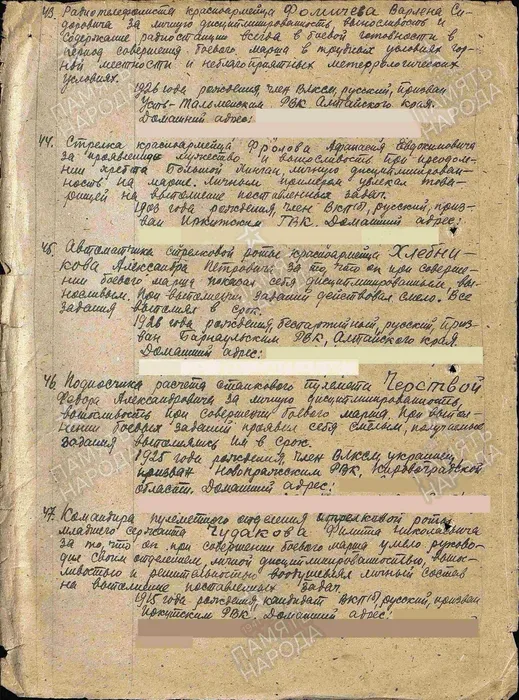 43. Радиотелефониста красноармейца Фомичева Варлена Си-
доровича за личную дисциплинированность, выносливость и
содержание радиостанции всегда в боевой готовности в
период совершения боевого марша в трудных условиях гор-
ной местности и неблагоприятных метеорологических
условиях.
1926 года рождения, член ВЛКСМ, русский, призван
Усть-Тальменским РВК Алтайского края.
Домашний адрес:
44. Стрелка красноармейца Фролова Афанасия Евдокимовича
за проявленные мужество и выносливость при преодоле-
нии хребта Большой Хинган, личную дисциплинирован-
ность на марше. Личным примером увлекал това-
рищей на выполнение поставленных задач.
1903 года рождения, член ВКП/б/, русский, приз-
ван Иркутским ГВК. Домашний адрес:
45. Автоматчика стрелковой роты красноармейца Хлебни-
кова Александра Петровича за то, что он при соверше-
нии боевого марша показал себя дисциплинированным, вы-
носливым. При выполнении заданий действовал смело. Все
задания выполнял в срок.
1926 года рождения, беспартийный, русский, приз-
ван Барнаульским РВК, Алтайского края.
Домашний адрес:
46. Подносчика расчета станкового пулемета Черствой
Федора Александровича за личную дисциплинированность,
выносливость при совершении боевого марша. При выпол-
нении боевых заданий проявил себя смелым, полученные
задания выполнялись им в срок.
1925 года рождения, член ВЛКСМ, украинец,
призван Новопражским РВК, Кировоградской
области. Домашний адрес:
47. Командира пулеметного отделения стрелковой роты
младшего сержанта Чудакова Филиппа Николаевича
за то, что он при совершении боевого марша умело руково-
дил своим отделением, личной дисциплинированностью, вынос-
ливостью и решительностью воодушевлял личный состав
на выполнение поставленных задач.
1915 года рождения, кандидат ВКП/б/, русский, призван
Иркутским РВК. Домашний адрес:
ПАМЯТЬ
НАРОДА